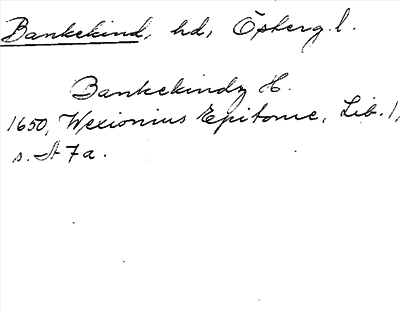 Bankekind, hd, Österg. l.
Bankekindz H.
1650, Wexionius Epitome, Lib. 1,
s. St 7a.